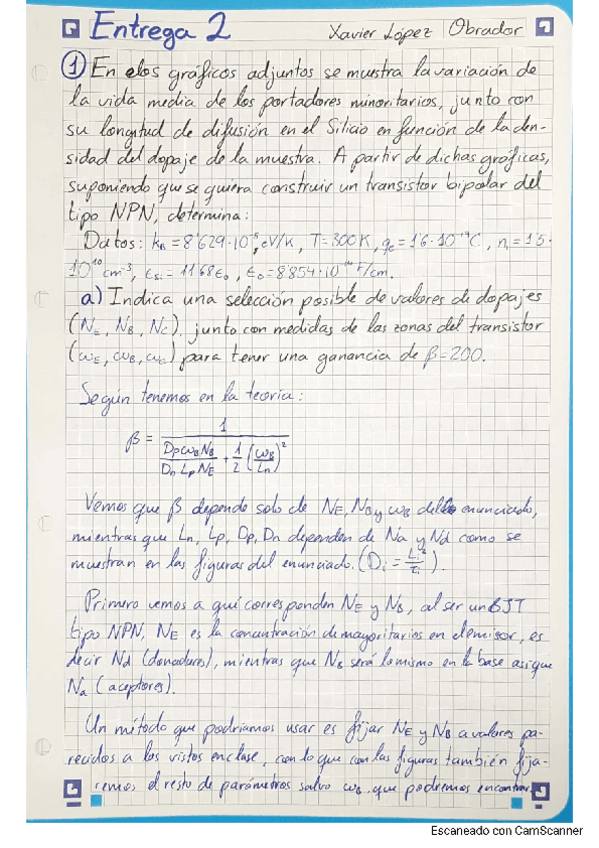 Entrega 2 Xavier López Obrador
① En los gráficos adjuntos se muestra la variación de
la vida media de los portadores minoritarios, junto con
su longitud de difusión en el Silicio en función de la den-
sidad del dopaje de la muestra. A partir de dichas gráficas,
suponiendo que se quiera construir un transistor bipolar del
tipo NPN, determina:
Datos: k_B = 8'629·10^-5 eV/K, T=300K, q_e = 1'6·10^-19 C, n_i = 1'5·
10^10 cm^-3, ε_Si = 11'68ε_0, ε_0 = 8'854·10^-14 F/cm.
a) Indica una selección posible de valores de dopajes
(N_E, N_B, N_C), junto con medidas de las zonas del transistor
(ω_E, ω_B, ω_C) para tener una ganancia de β=200.
Según tenemos en la teoría:
β = 1 / (Dp ω_B N_B / Dn Lp N_E + 1/2 (ω_B/Ln)^2)
Vemos que β depende solo de N_E, N_B y ω_B del enunciado,
mientras que Ln, Lp, Dp, Dn dependen de Na y Nd como se
muestran en las figuras del enunciado. (D_i = L_i^2/τ_i).
Primero vemos a qué corresponden N_E y N_B, al ser un BJT
tipo NPN, N_E es la concentración de mayoritarios en el emisor, es
decir Nd (donadores), mientras que N_B será lo mismo en la base asi que
Na (aceptores).
Un método que podriamos usar es fijar N_E y N_B a valores pa-
recidos a los vistos en clase, con lo que con las figuras también fija-
remos el resto de parámetros salvo ω_B que podremos encontrar
Escaneado con CamScanner